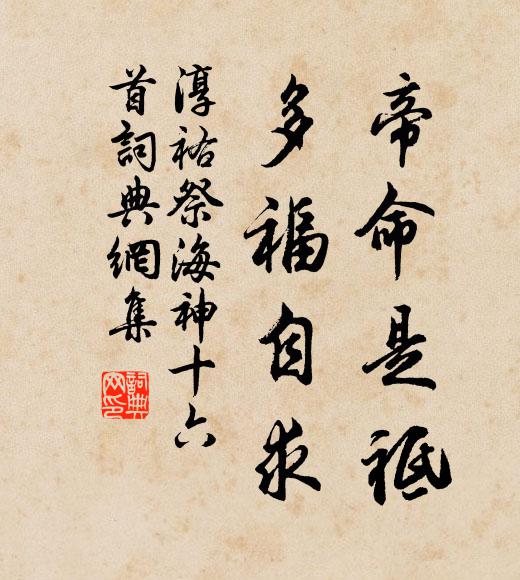 帝命是祗
多福自求
淳祐祭海神十六
首詞典網集
詞典
网印